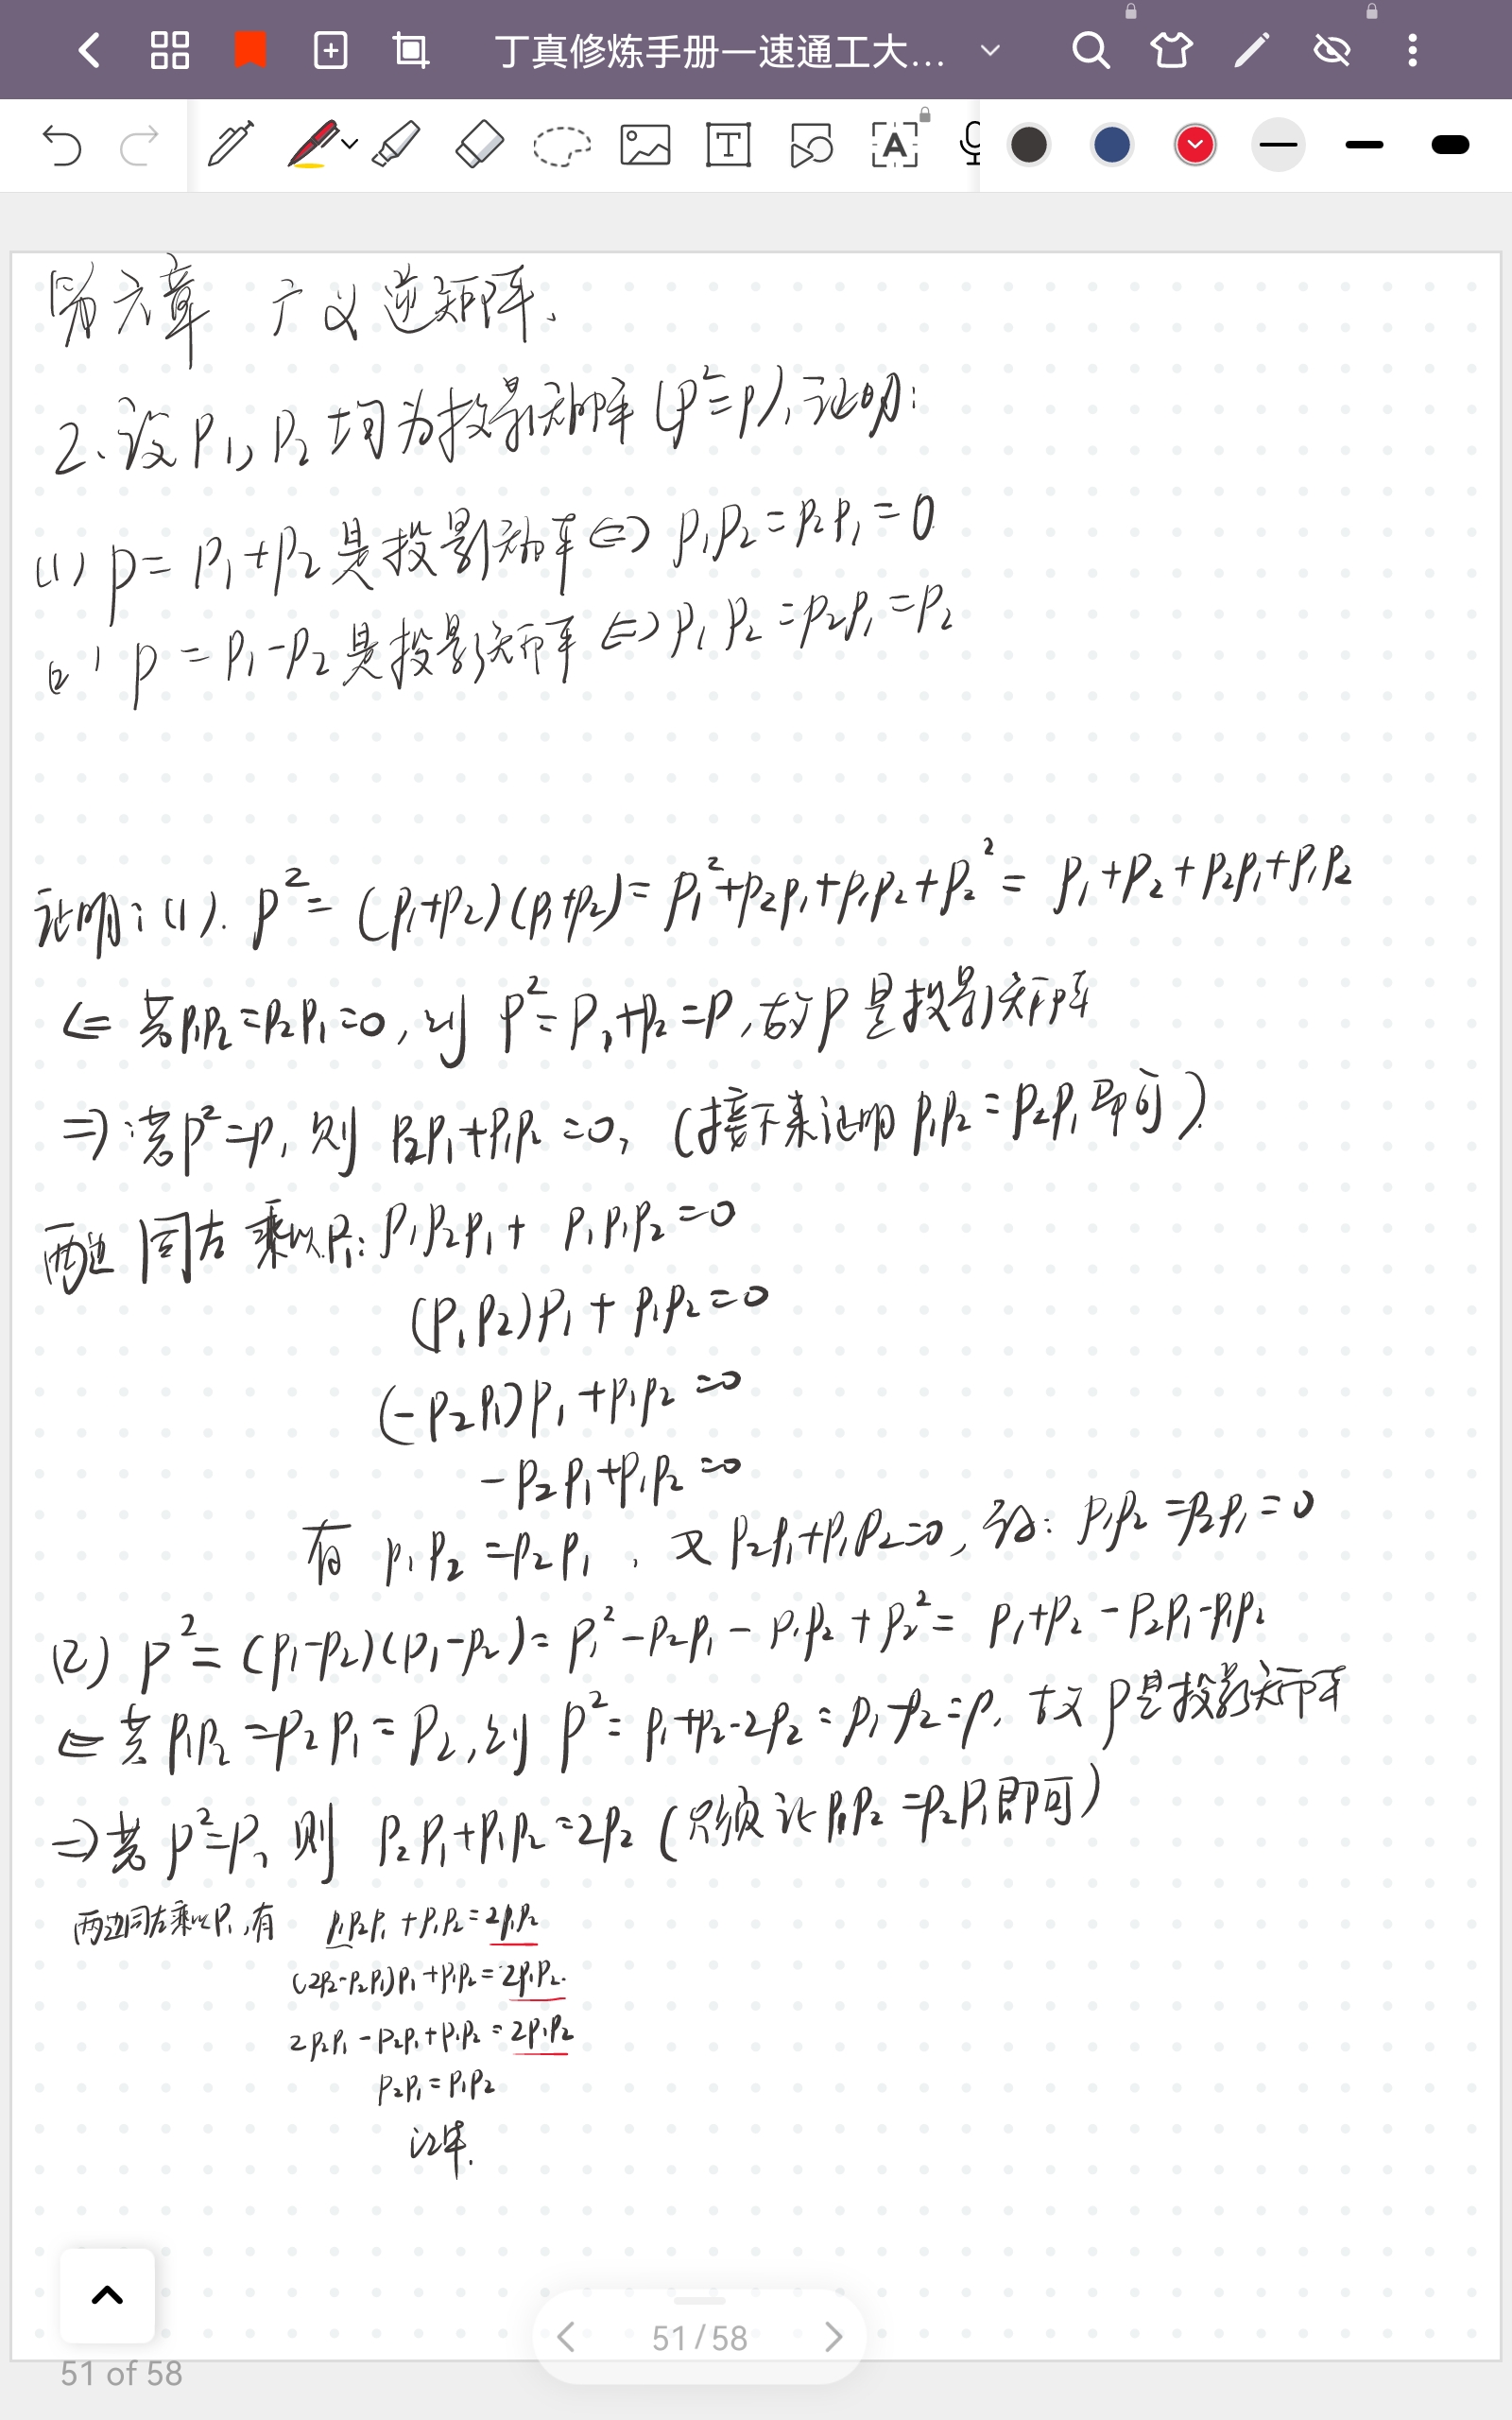 丁真修炼手册一速通工大...
T
A
第六章 广义逆矩阵.
2. 设 P₁, P₂ 均为投影矩阵 (P²=P), 证明:
(1) P = P₁+P₂ 是投影矩阵 ⇔ P₁P₂ = P₂P₁ = 0
(2) P = P₁-P₂ 是投影矩阵 ⇔ P₁P₂ = P₂P₁ = P₂
证明: (1). P² = (P₁+P₂)(P₁+P₂) = P₁²+P₂P₁+P₁P₂+P₂² = P₁+P₂+P₂P₁+P₁P₂
⇐ 若 P₁P₂=P₂P₁=0, 则 P²=P₁+P₂=P, 故 P 是投影矩阵
⇒: 若 P²=P, 则 P₂P₁+P₁P₂=0, (接下来证明 P₁P₂=P₂P₁ 即可)
两边同左乘以P₁: P₁P₂P₁+ P₁P₁P₂=0
(P₁P₂)P₁+P₁P₂=0
(-P₂P₁)P₁+P₁P₂=0
-P₂P₁+P₁P₂=0
有 P₁P₂=P₂P₁, 又 P₂P₁+P₁P₂=0, 故: P₁P₂=P₂P₁=0
(2) P² = (P₁-P₂)(P₁-P₂) = P₁²-P₂P₁-P₁P₂+P₂² = P₁+P₂-P₂P₁-P₁P₂
⇐ 若 P₁P₂=P₂P₁=P₂, 则 P²=P₁+P₂-2P₂=P₁-P₂=P, 故 P是投影矩阵
⇒ 若 P²=P, 则 P₂P₁+P₁P₂=2P₂ (只须证 P₁P₂=P₂P₁即可)
两边同左乘以P₁, 有 P₁P₂P₁+P₁P₂=2P₁P₂
(2P₂-P₂P₁)P₁+P₁P₂=2P₁P₂.
2P₂P₁-P₂P₁+P₁P₂=2P₁P₂
P₂P₁=P₁P₂
证毕.
51/58
51 of 58